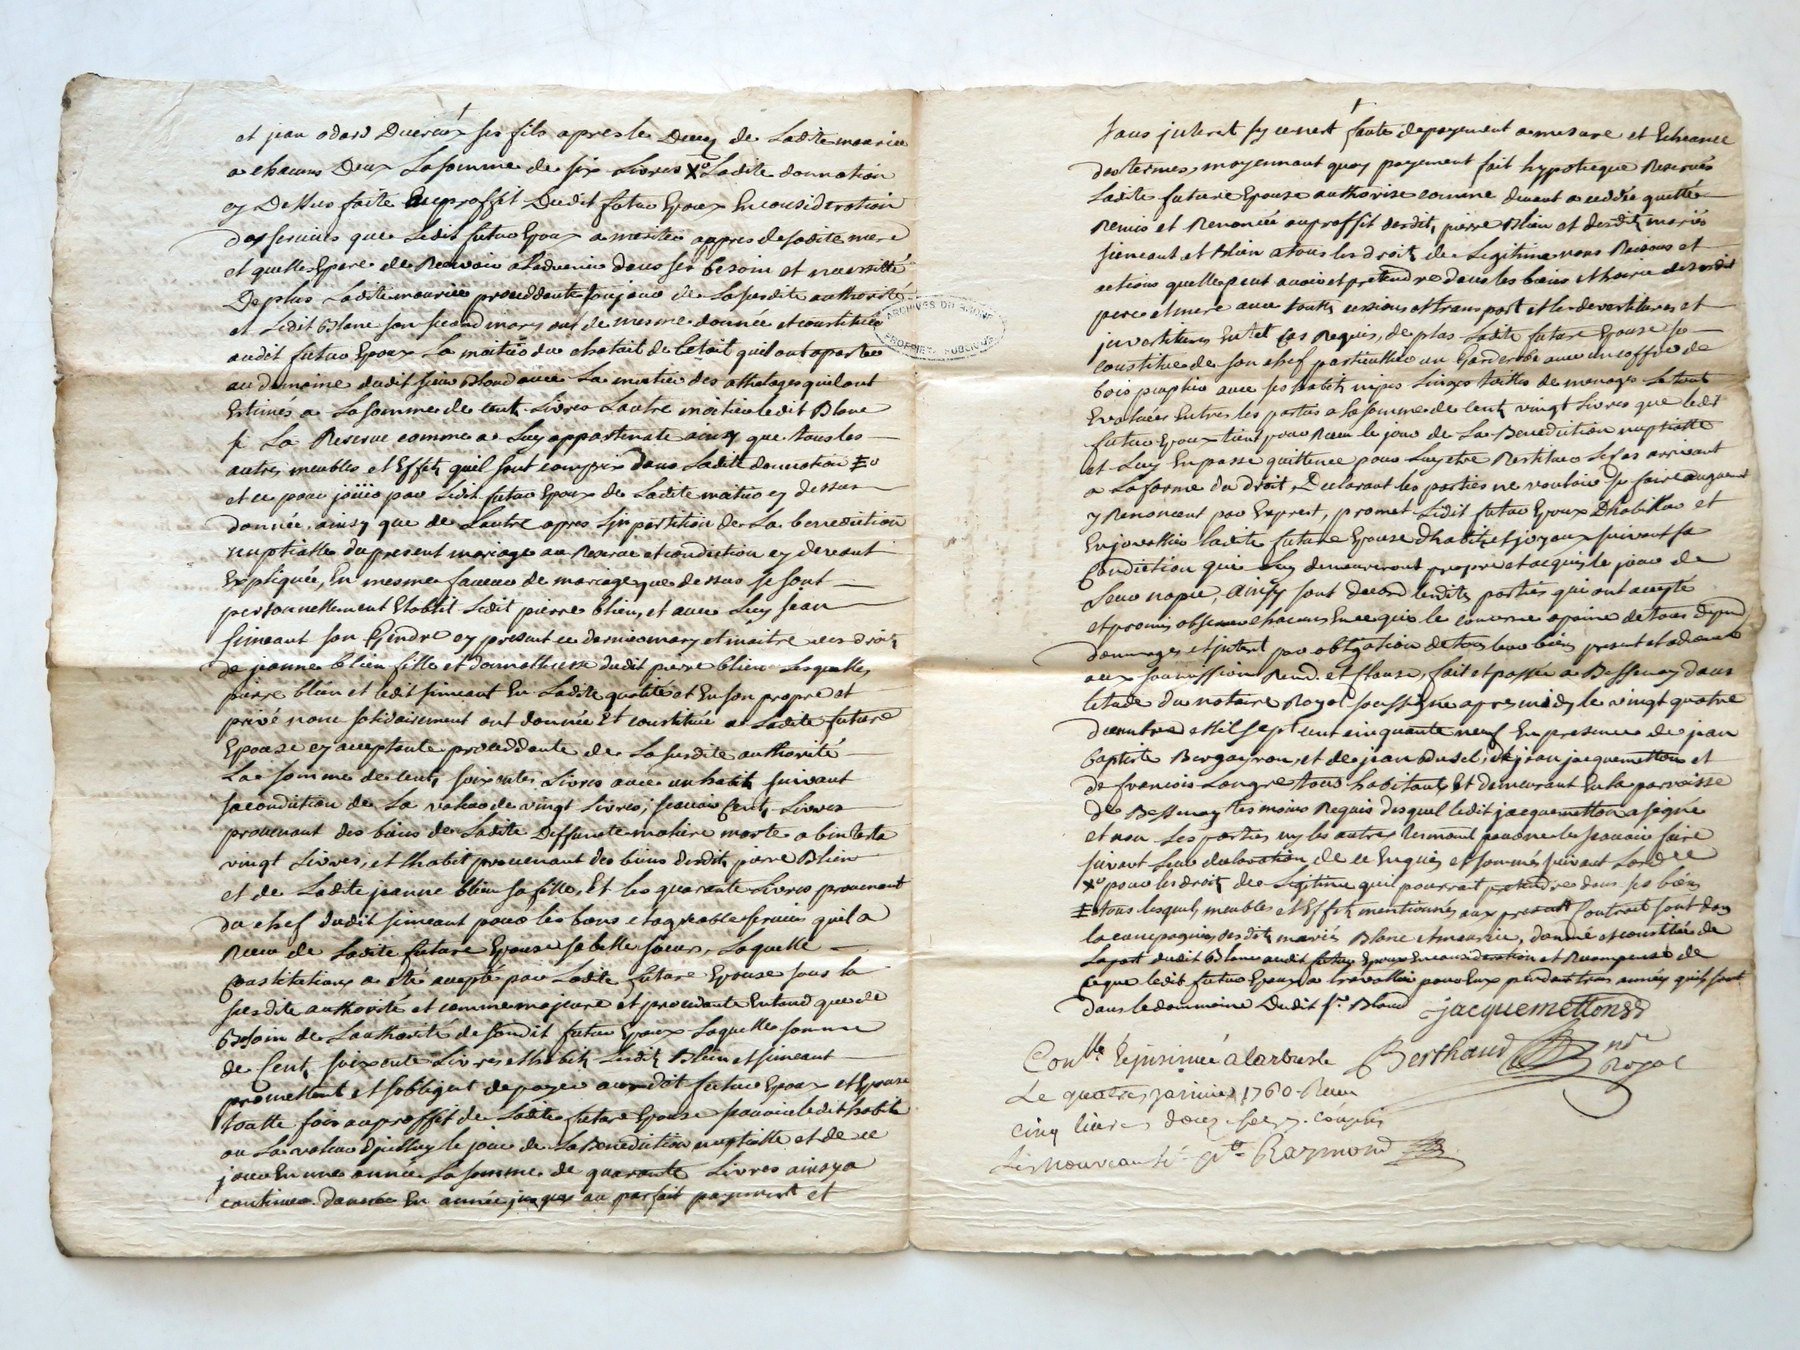 et jean odard Ducreux ses fils apres le Deces de Ladite mauriere
a chacuns Deux La somme de six Livres X Ladite donnation
cy Dessus faite au proffit Dudit futur Epoux En consideration
des services que Ledit futur Epoux a merités auppres de sadite mere
et quelle Espere de Recevoir a Ladvenir dans ses besoin et necessitté
De plus Ladite mauriere proceddante toujours de La susdite authorité
et Ledit Blanc son second mary ont de mesme donnée et constitué
audit futur Epoux La moitié du chatail de betail quil ont aporté
au domaine dudit sieur Bloud avec La moitié des attelages quil ont
Estimés a La somme de cent Livres Lautre moitié ledit Blanc
se La Reserve comme a Luy appartenante ainsy que tous les
autres meubles et Effets quil sont compris dans Ladite donnation
et ce pour joüir par Ledit futur Epoux de Ladite moitié cy dessus
donnée, ainsy que de Lautre apres Limpartition de La benediction
nuptialle du present mariage au Reserve et condiction cy devant
Expliquée, En mesme faveur de mariage que dessus se sont
personnellement Etablit Ledit pierre blein, et avec Luy jean
simeant son Gendre cy present ce dernier mary et maitre des droits
de jeanne blein fille et donnattaire dudit pierre blein Lesquelles,
pierre blein et ledit simeant En Ladite qualité et En son propre et
privé nom solidairement ont donnée Et constituée a Ladite future
Epouse cy acceptante proceddante de La susdite authorité
La somme de cent, soixante Livres avec un habit suivant
sa condition de La valeur de vingt Livres; scavoir Cent, Livres
provenant des biens de Ladite Deffunte matiere morte abintesta
vingt Livres, et lhabit provenant des biens dudit pierre Blein
et de Ladite jeanne blein sa fille, Et les quarante Livres provenant
du chef dudit simeant pour les bons et agreable services quil a
Receu de Ladite future Epouse sa belle soeur, Laquelle
Constitution a été accepté par Ladite future Epouse sous la
susdite authorité et comme majeure et procedante Entand que de
Besoin de Lauthorité de sondit futur Epoux Laquelle somme
de Cent, soixente Livres et habit, Lesdits blein et simeant
promettent et sobligent de payer auxdit futur Epoux et Epouse
toutte fois au proffit de Ladite future Epouse scavoir ledit habit
ou La valeur dyceluy le jour de La Benediction nuptialle et de ce
jour En une année La somme de quarante Livres ainsy a
continuer dannée En année jusques au parfait payement et
sans jnteret sy ce nest faute de payement a mesure et Echeance
des termes, moyennant quoy payement fait hypoteque Reservés
Ladite future Epouse authorisé comme devant a ceddée quitté
Remis et Renoncée au proffit desdits pierre Blein et desdits mariés
simeant et Blein a tous les droits de Legitime noms Raisons et
actions quelle peut avoir et pretendre dans les biens et hoirie desesdit
pere et mere avec touttes cessions et transport et les devestitures et
jnvestitures En tel cas Requis, de plus Ladite future Epouse se
constitue de son chef particullier un Garderobe avec un coffre de
bois peuplier avec ses habits nipes Linges toilles de menages Le tout
Evaluées Entres les parties a La somme de cent, vingt Livres que ledit
futur Epoux tient pour Receu le jour de La Benediction nuptialle
et Luy En passe quittence pour Luy etre Restitué Le cas arrivant
a La forme du droit, Declarant les parties ne vouloir se faire augment
y Renoncent par Exprest, promet Ledit futur Epoux Dhabiller et
Enjoyaller Ladite future Epouse dhabits et joyaux suivant sa
Condiction qui Luy demeureront propre et acquis le jour de
Leur nopce, Ainsy sont dacord lesdites parties qui ont accepté
et promis observer chacuns En ce qui le concerne a peine de tous depend
dommages et jnterest par obligation de tous leur biens present et advenir
aux soumission Rend. et Clause, fait et passée a Bessenay dans
letude du notaire Royal soussigné apres midy le vingt quatre
decembre Mil sept cent cinquante neuf En presence de jean
baptiste Bergeyron, et de jean Dusel, de jean jacquemettons et
de francois Longre tous habitants, Et demeurant En la parroisse
de Bessenay temoins Requis desquel ledit jacquemetton a signé
et non Les parties ny les autres temoins pour ne le scavoir faire
suivant Leur declaration de ce Enquis et sommés suivant Lord.ce
X pour les droits de Legitime quil pourrait pretendre dans ses biens
tous lesquels meubles et Effets mentionnés aux present Contrat sont dans
la compagnie desdits mariés Blanc et mauriere, donné et constitué de
La part dudit Blanc audit futur Epoux En consideration et Recompense de
ce que ledit futur Epoux a travaillée pour Eux pendant trois années quils sont
dans le dommaine Dudit s.r Bloud jacquemettons
Con.lle & jnsinué a larbresle Berthaud n.re
Le quatre janvier 1760 Receu Royal
cinq livres douze sols compris
Les nouveaux s. Raymond
ARCHIVES DU RHONE
PROPRIETE PUBLIQUE